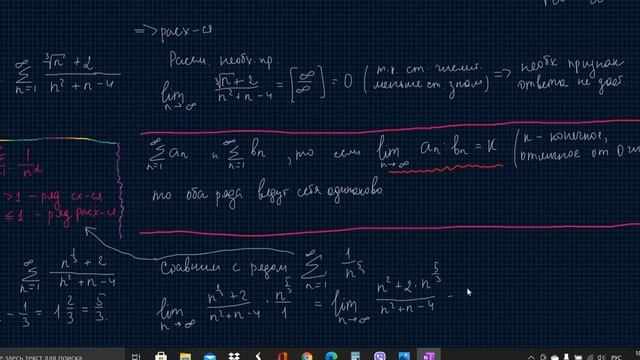 ⇒ расх-ся
Рассм. необх. пр.
∑_{n=1}^{∞} (∛n + 2)/(n² + n − 4)
lim_{n→∞} (∛n + 2)/(n² + n − 4) = [∞/∞] = 0 (т.к. ст. числит. меньше ст. знам) ⇒ необх признак ответа не даёт.
∑_{n=1}^{∞} aₙ и ∑_{n=1}^{∞} bₙ, то если lim_{n→∞} aₙ : bₙ = K (к – конечное, отличное от 0
то оба ряда ведут себя одинаково
1/n^α
>1 – ряд сх-ся
≤1 – ряд расх-ся
Сравним с рядом ∑_{n=1}^{∞} 1/n^{5/3}
∑_{n=1}^{∞} (n^{1/3} + 2)/(n² + n − 4)
− 1/3 = 1 2/3 = 5/3.
lim_{n→∞} (n^{1/3} + 2)/(n² + n − 4) · n^{5/3}/1 = lim_{n→∞} (n² + 2·n^{5/3})/(n² + n − 4) –
здесь текст для поиска
РУС